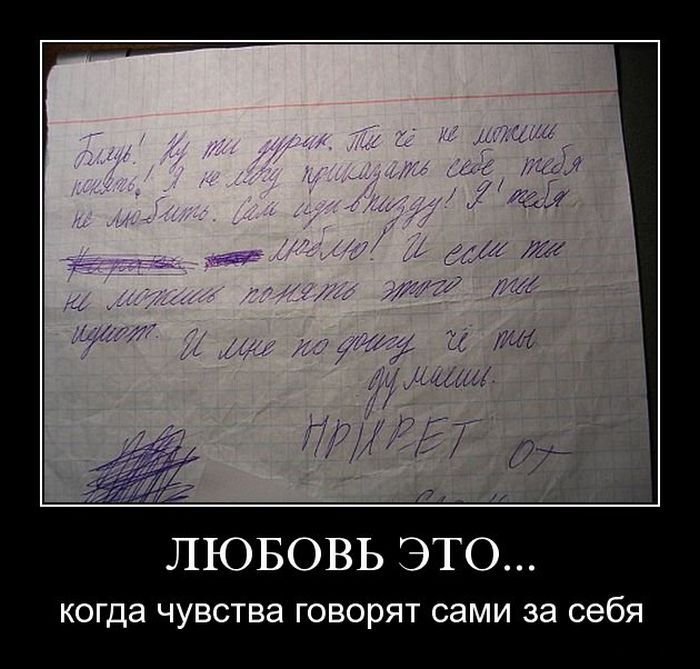 Блядь! Ну ты дурик. Ты чё не можешь
понять! Я не могу приказать себе тебя
не любить. Сам иди в пизду! Я тебя
люблю! И если ты
не можешь понять этого ты
идиот. И мне пофигу чё ты
думаешь.
ПРИВЕТ от
ЛЮБОВЬ ЭТО...
когда чувства говорят сами за себя